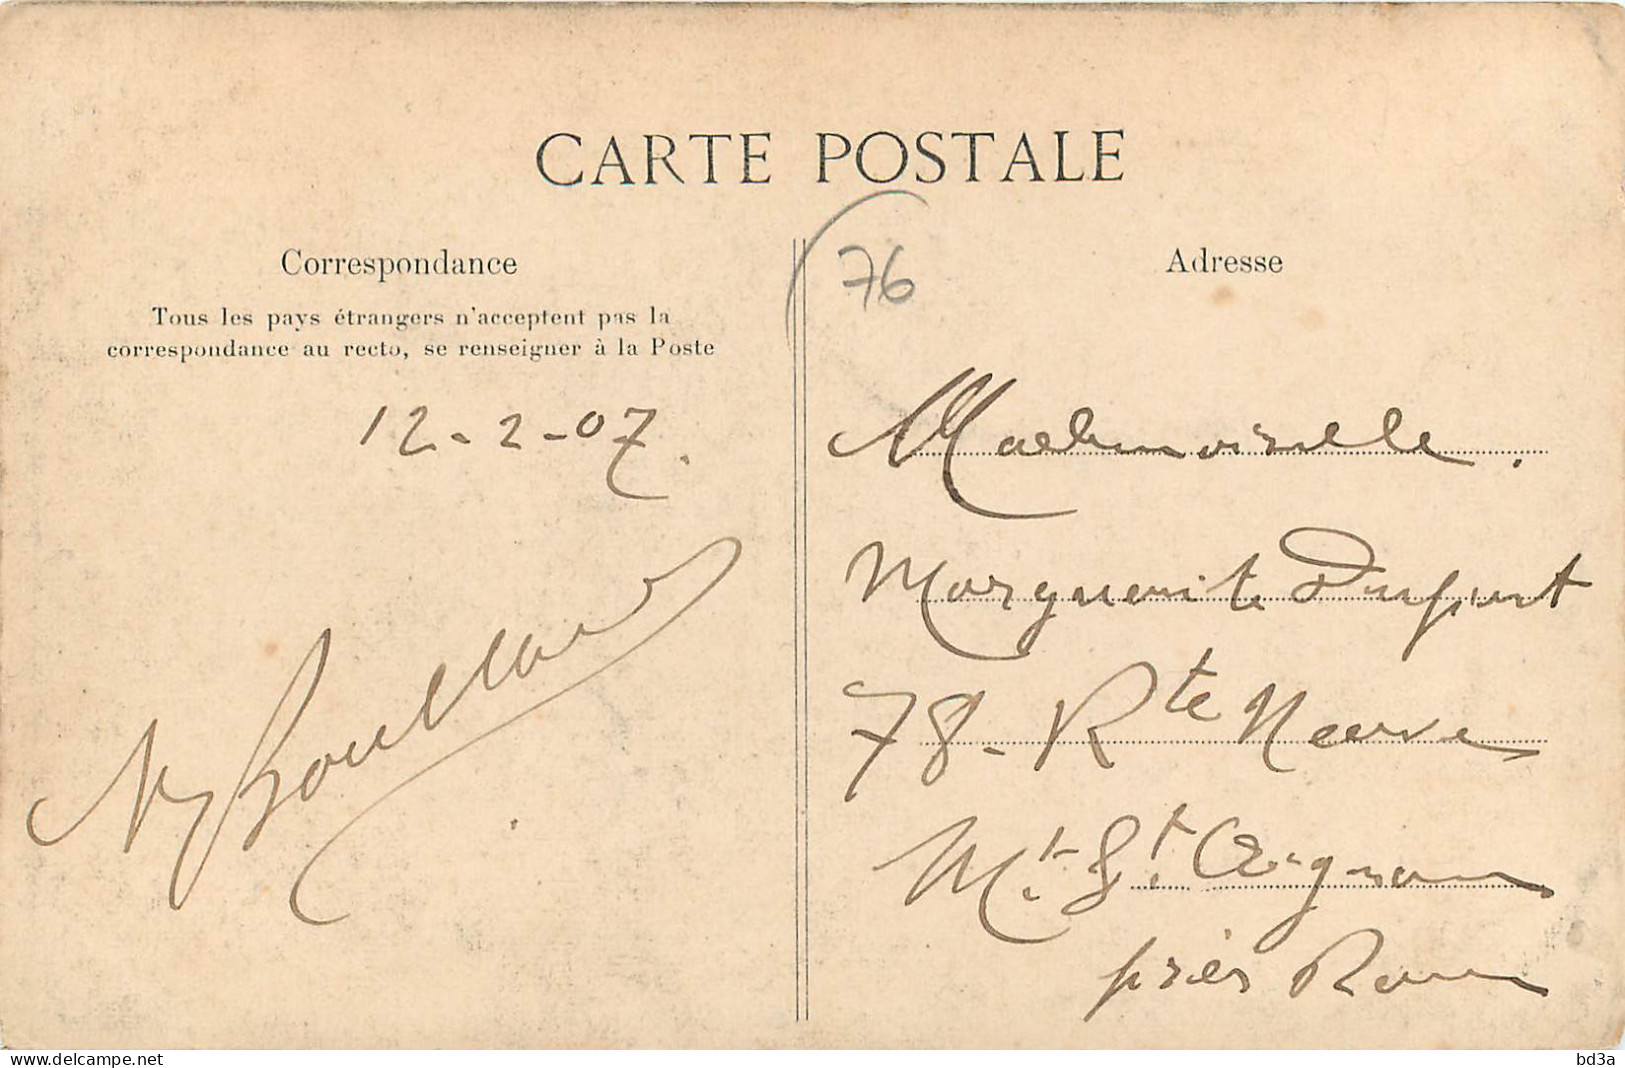 CARTE POSTALE
Correspondance
Tous les pays étrangers n'acceptent pas la
correspondance au recto, se renseigner à la Poste
12-2-07.
76
Adresse
Mademoiselle.
Marguerite
78 - Rte Neuve
Mt. St. Aignan
près Rouen
delcampe.net
bd3a